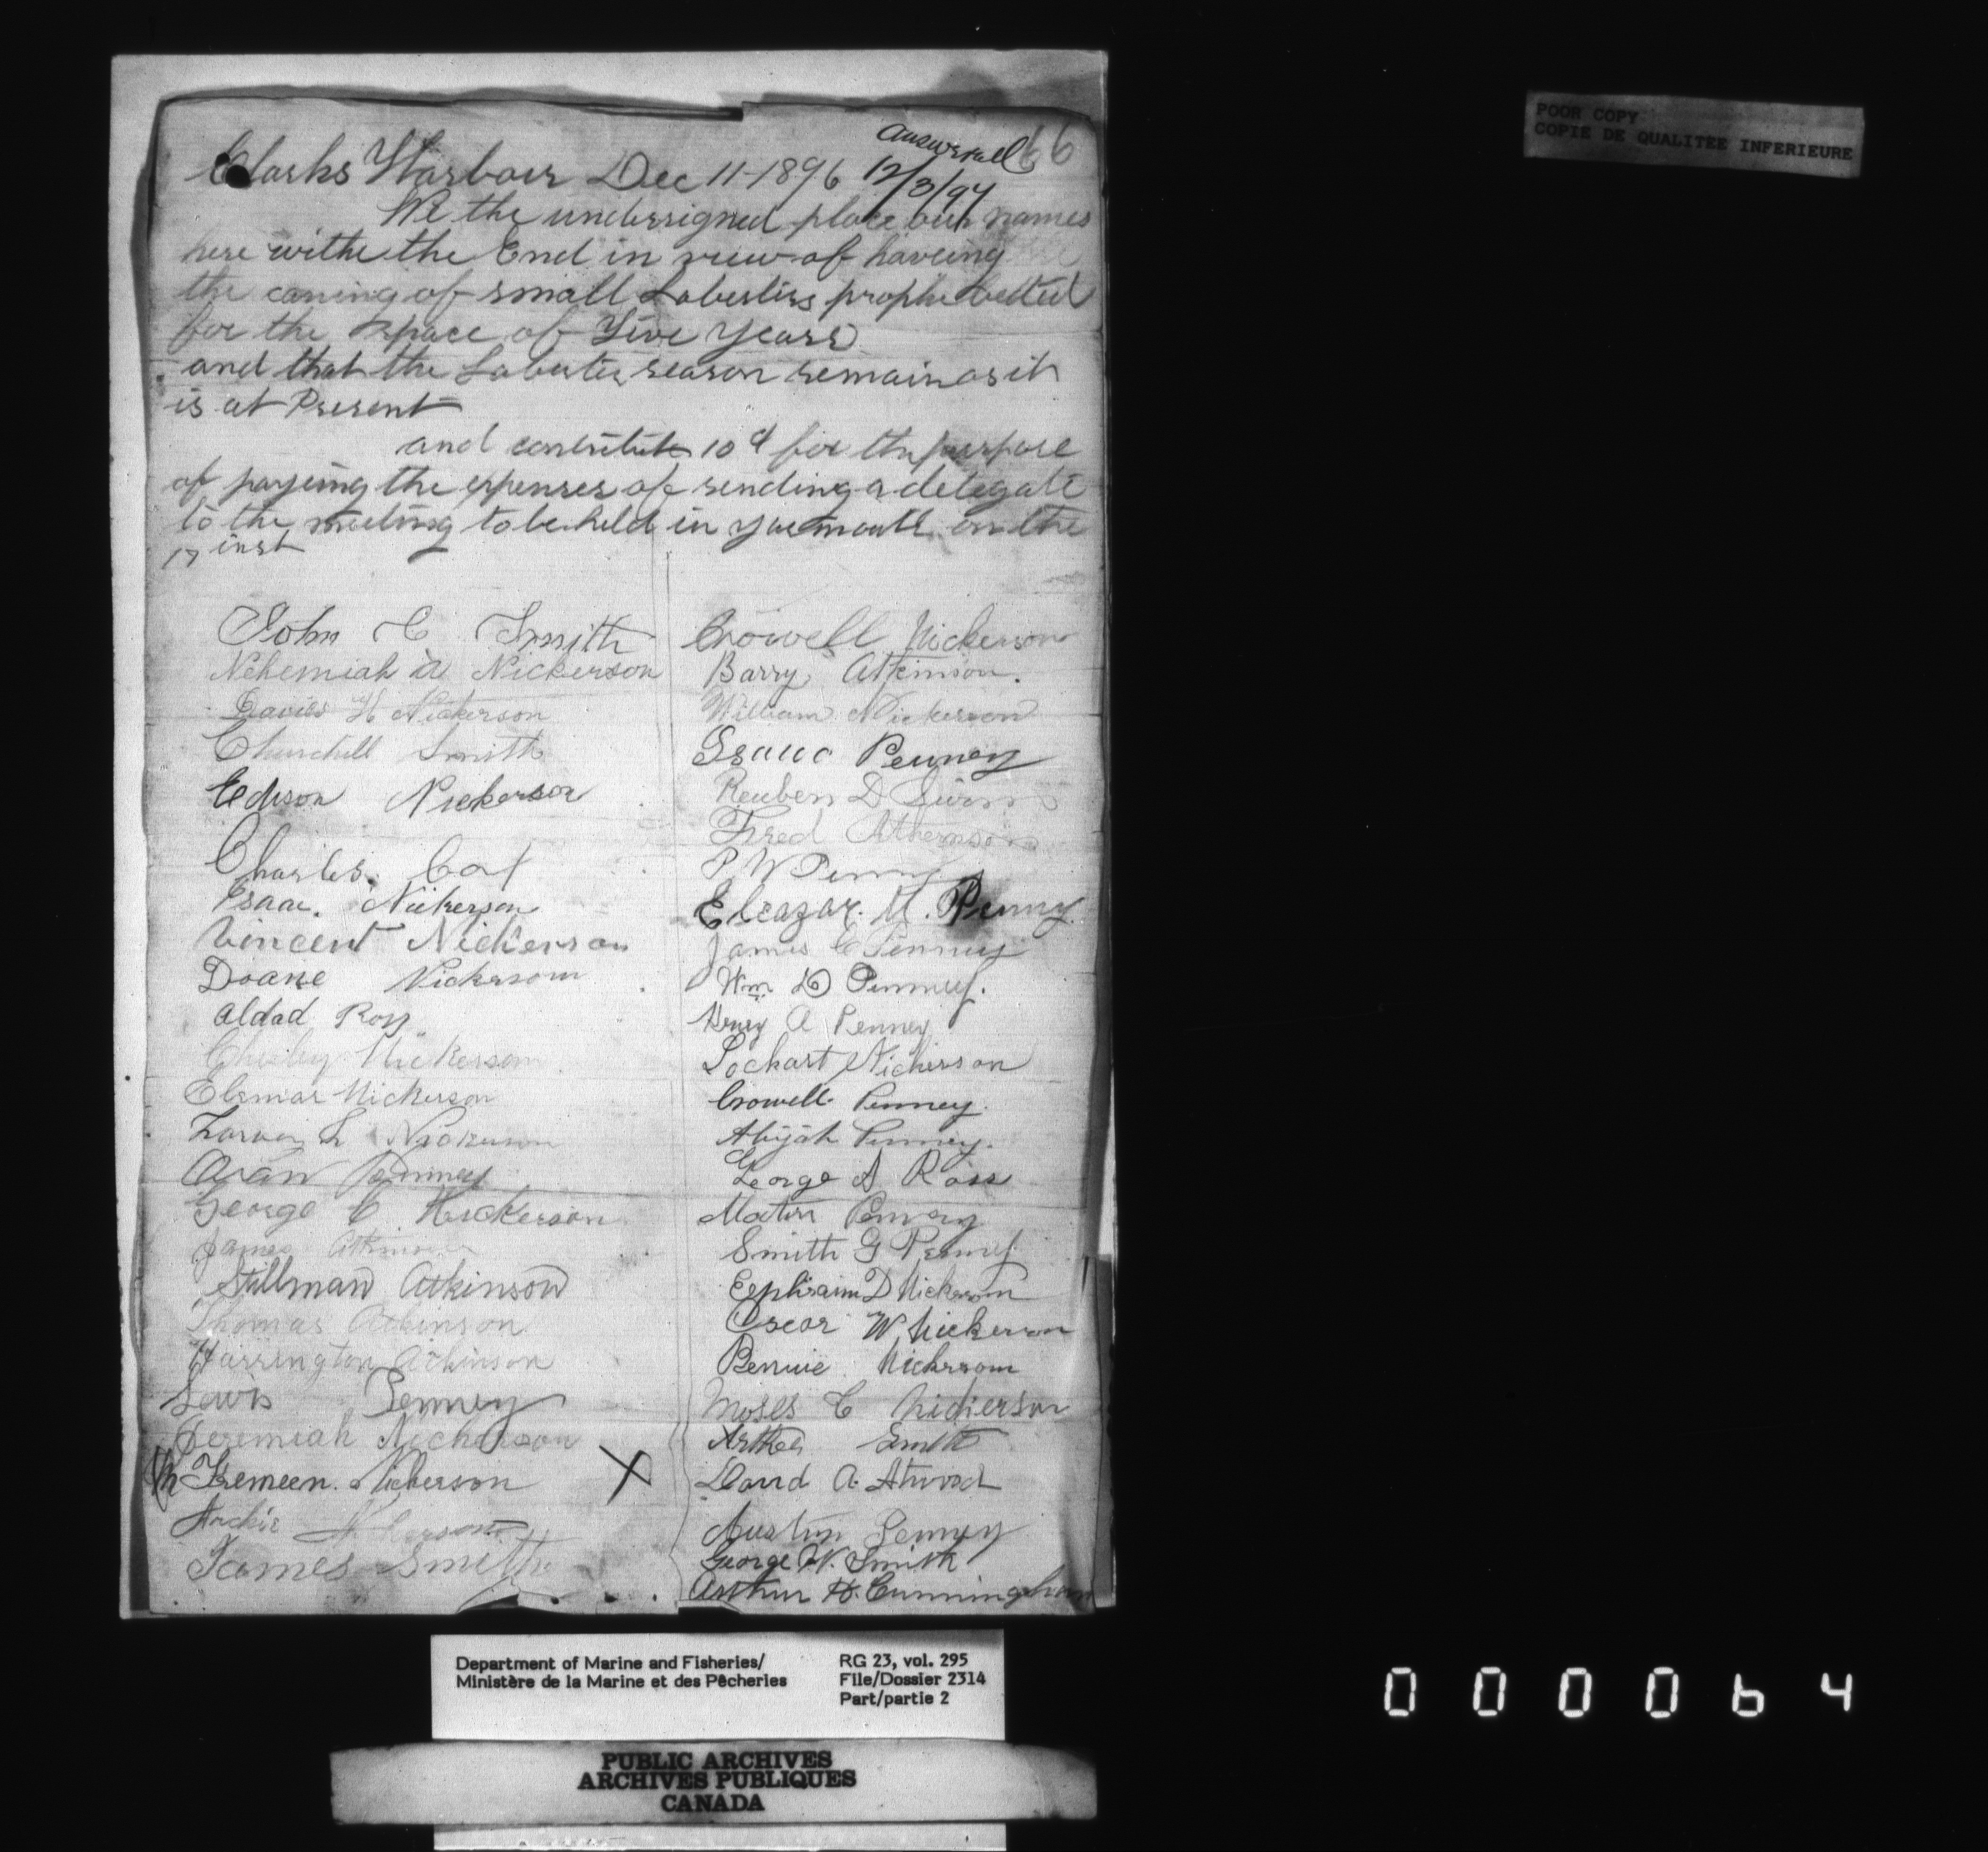 answered 66
12/3/97
Clarks Harbour Dec 11-1896
We the undersigned place our names
here withe the End in view of haveing
the caning of small Labusters prophebetted
for the space of Five years
and that the Labuster season remain as it
is at Present
and contribute 10 ct for the purpose
of paying the expenses of sending a delegate
to the meeting to be held in yarmouth on the
17 inst
John C Smith
Nehemiah A Nickerson
David H Nickerson
Churchill Smith
Edison Nickerson
Charles. Cox
Isaac. Nickerson
Vincent Nickerson
Doane Nickerson
Aldad Ross
Chesley Nickerson
Elemar Nickerson
L Nickerson
Penney
George C Nickerson
James Atkinson
Stillman Atkinson
Thomas Atkinson
Harrington Atkinson
Lewis Penney
Jeremiah Nickerson
Fremeen. Nickerson X
Archie Nickerson
James Smith
Crowell Nickerson
Barry Atkinson.
William Nickerson
Isaac Penney
Reuben D Swim
Fred
P W Penney
Eleazar. M. Penny
James C Penney
Wm D Penney.
Henry A Penney
Lochart Nickerson
Crowell. Penney.
Abijah Penney.
George A Ross
Penney
Smith G Penney
Eephraim D Nickerson
Oscar W Nickerson
Bennie Nickerson
Moses C Nickerson
Arther Smith
David A. Atwood
Austin Penney
George W. Smith
Arthur H. Cunningham
POOR COPY
COPIE DE QUALITEE INFERIEURE
Department of Marine and Fisheries/
Ministère de la Marine et des Pêcheries
RG 23, vol. 295
File/Dossier 2314
Part/partie 2
PUBLIC ARCHIVES
ARCHIVES PUBLIQUES
CANADA
000064